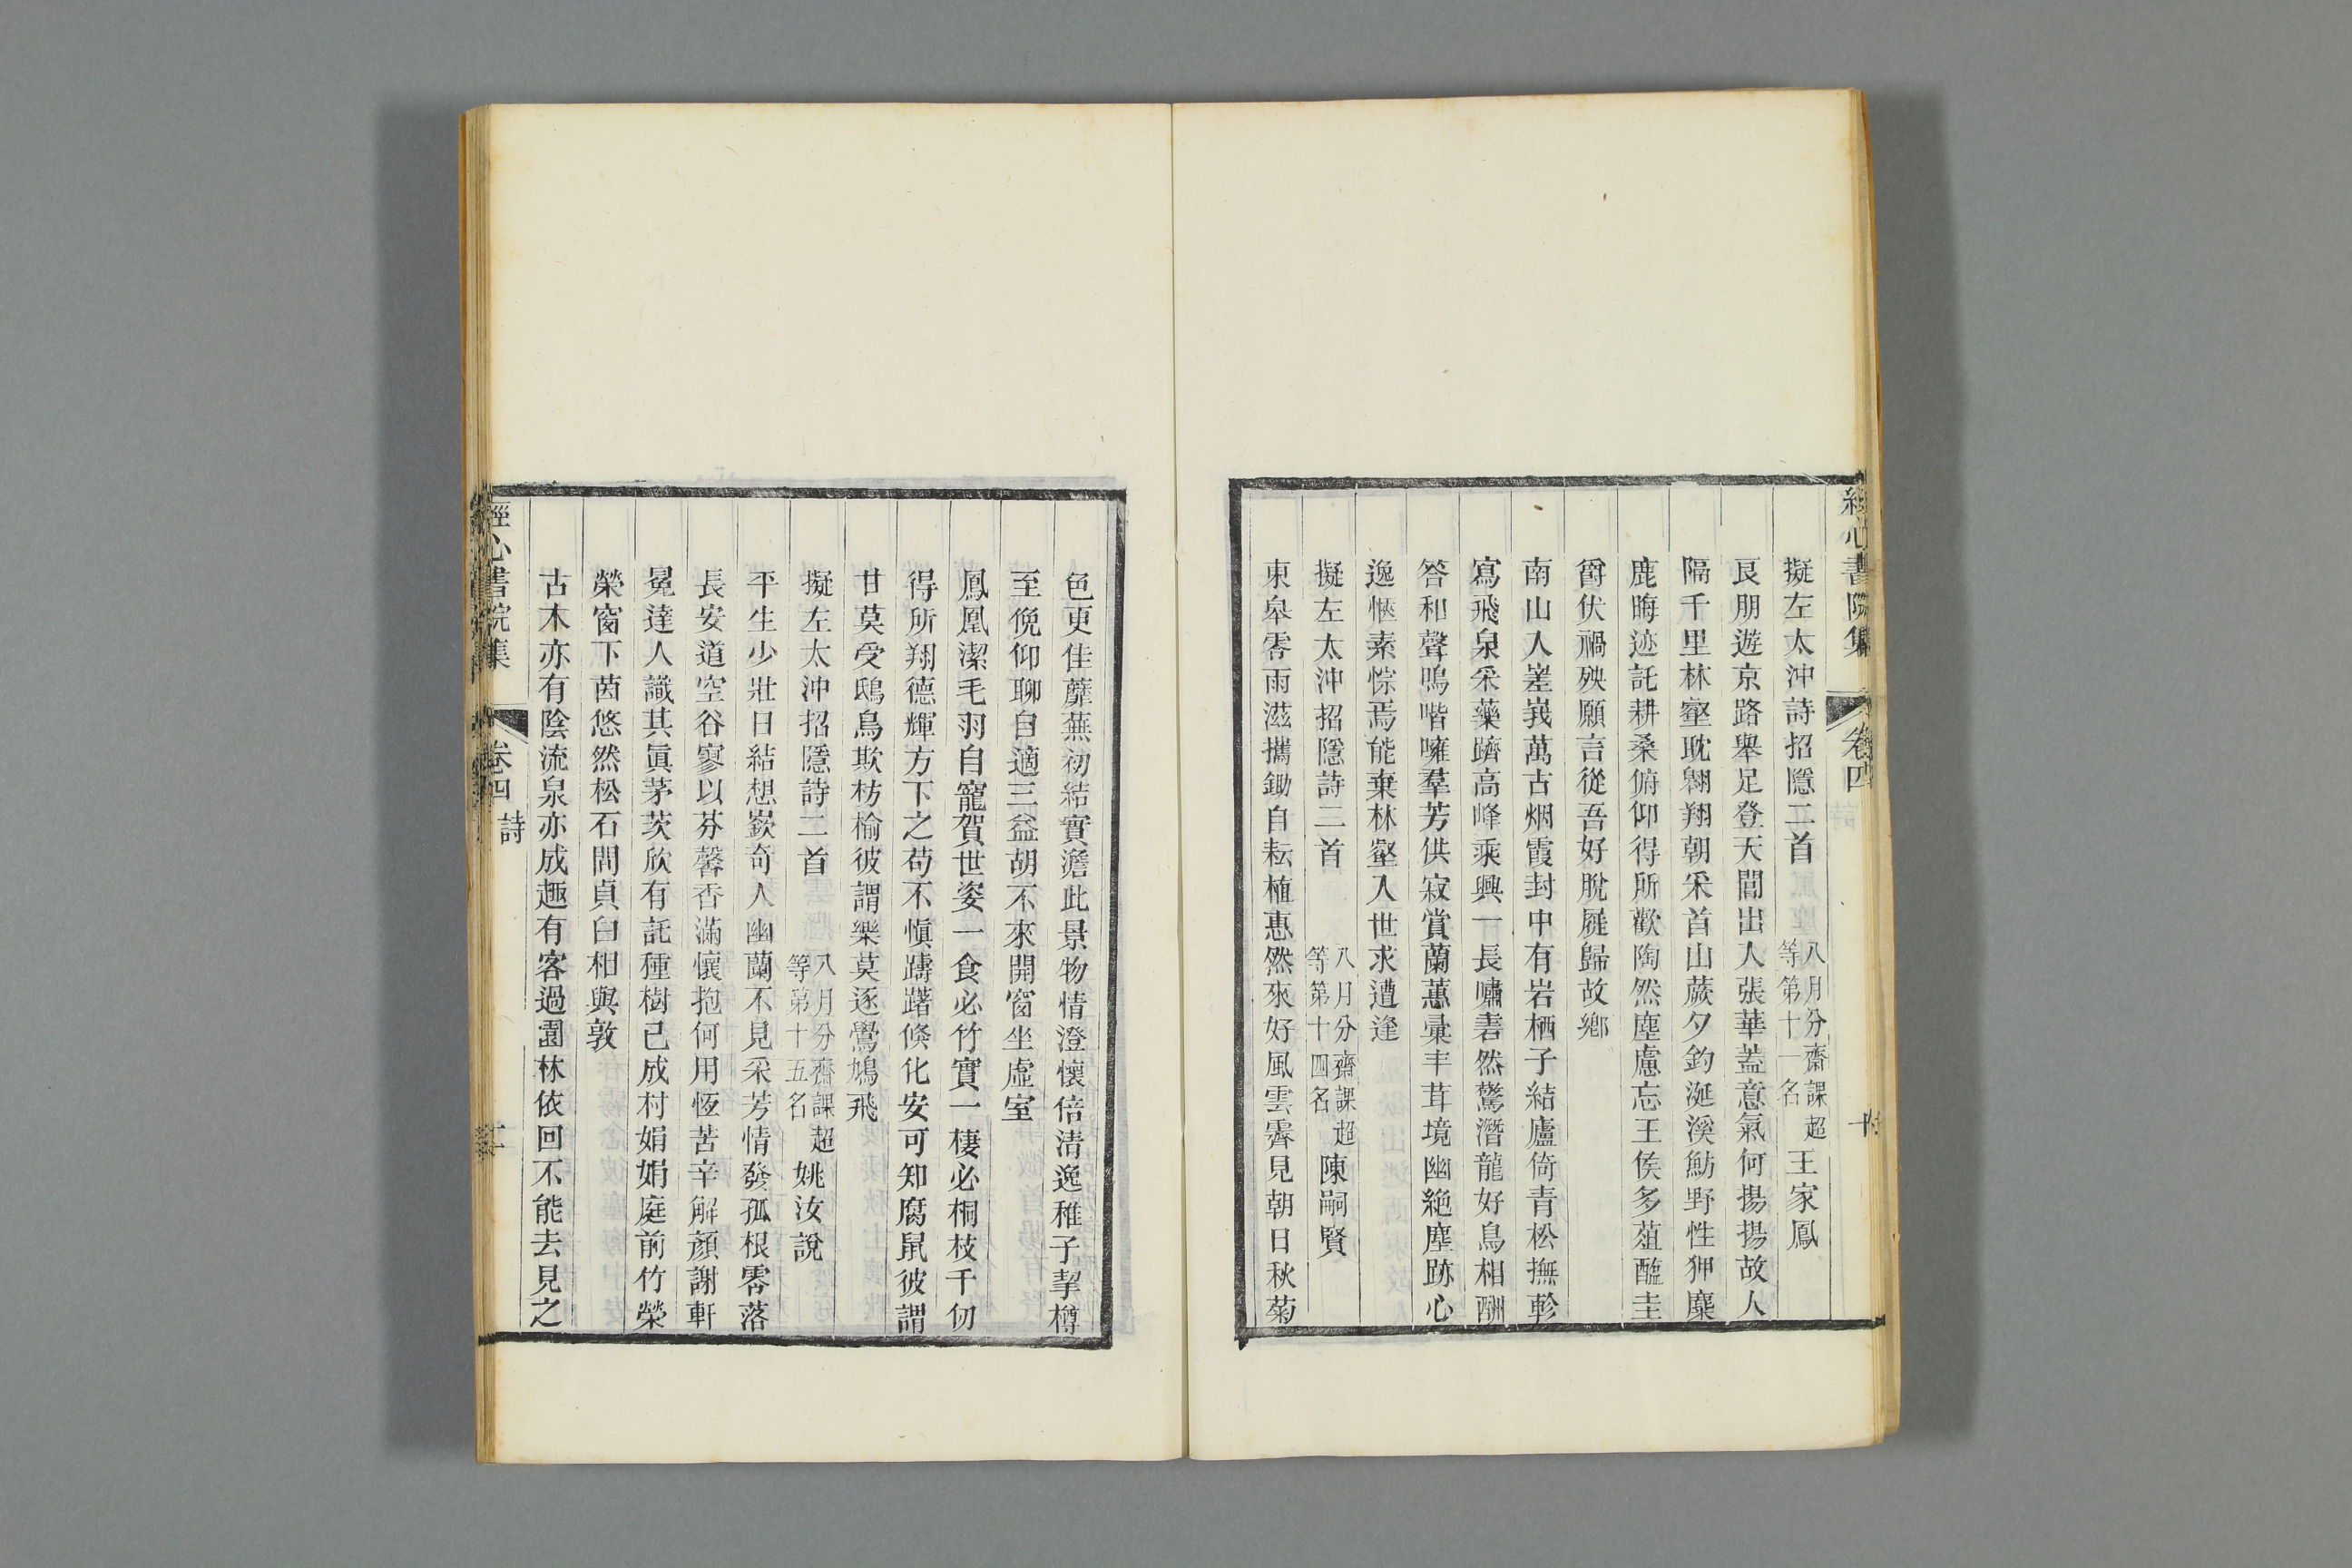 經心書院集 卷四 十
擬左太沖詩招隱二首 八月分齋課超等第十一名 王家鳳
良朋遊京路舉足登天閶出入張華蓋意氣何揚揚故人
隔千里林壑耽翱翔朝采首山蕨夕釣涎溪魴野性狎麋
鹿晦迹託耕桑俯仰得所歡陶然塵慮忘王侯多葅醢圭
爵伏禍殃願言從吾好脫屣歸故鄉
南山入嵳峩萬古烟霞封中有岩栖子結廬倚青松撫軫
寫飛泉采藥躋高峰乘興一長嘯砉然驚潛龍好鳥相酬
答和聲鳴喈噰羣芳供寂賞蘭蕙彙丰茸境幽絕塵跡心
逸愜素悰焉能棄林壑入世求遭逢
擬左太沖招隱詩二首 八月分齋課超等第十四名 陳嗣賢
東皋零雨滋攜鋤自耘植惠然來好風雲霽見朝日秋菊
色更佳蘼蕪初結實澹此景物情澄懷倍清逸稚子挈樽
至俛仰聊自適三益胡不來開窗坐虛室
鳳凰潔毛羽自寵賀世姿一食必竹實一棲必桐枝千仞
得所翔德輝方下之苟不慎躊躇倏化安可知腐鼠彼謂
甘莫受鴟鳥欺枋楡彼謂樂莫逐鷽鳩飛
擬左太沖招隱詩二首 八月分齋課超等第十五名 姚汝說
平生少壯日結想嶔奇人幽蘭不見采芳情發孤根零落
長安道空谷寥以芬馨香滿懷抱何用恆苦辛解顏謝軒
冕達人識其眞茅茨欣有託種樹已成村娟娟庭前竹榮
榮窗下茵悠然松石間貞白相與敦
古木亦有陰流泉亦成趣有客過園林依回不能去見之
經心書院集 卷四 詩